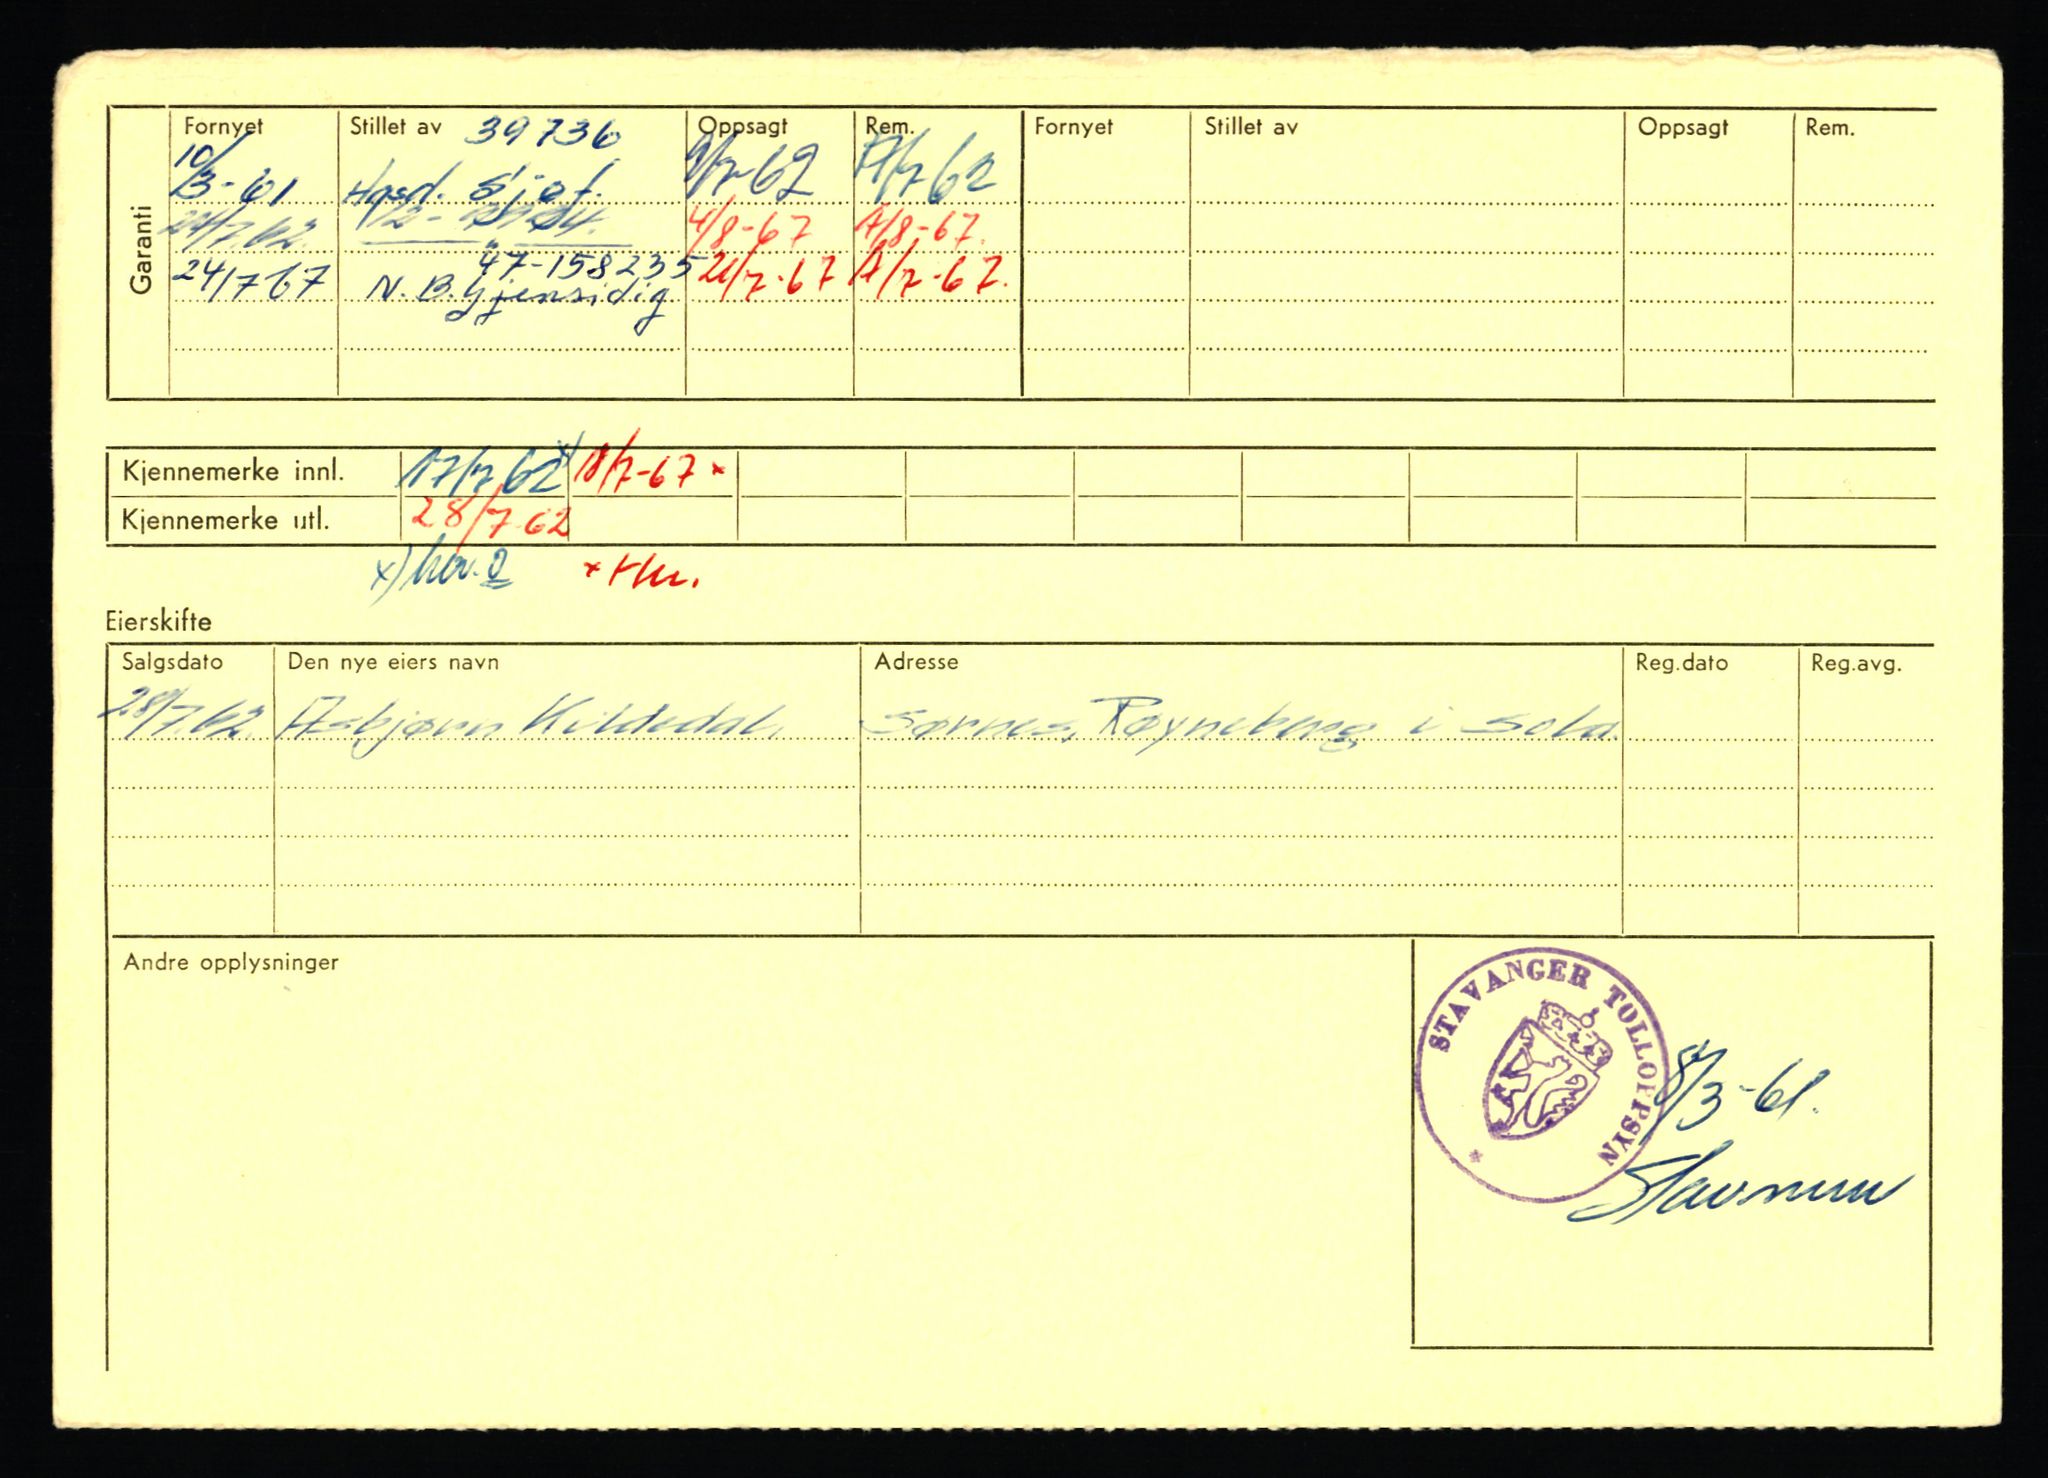 Garanti
Fornyet Stillet av 39736 Oppsagt Rem. Fornyet Stillet av Oppsagt Rem.
10/3-61 Hgsd. Sjøf. 9/7-62 A/7 62
24/7.62. 4/8-67 A/8-67.
24/7 67 47-158235 21/7-67 A/7-67.
N.B. Gjensidig
Kjennemerke innl. 17/7 62 x) 18/7-67 x
Kjennemerke utl. 28/7 62
x) x
Eierskifte
Salgsdato Den nye eiers navn Adresse Reg.dato Reg.avg.
28/7.62. Asbjørn Kildedal, Sørnes, Røyneberg i Sola.
Andre opplysninger
STAVANGER TOLLOPPSYN
8/3-61.